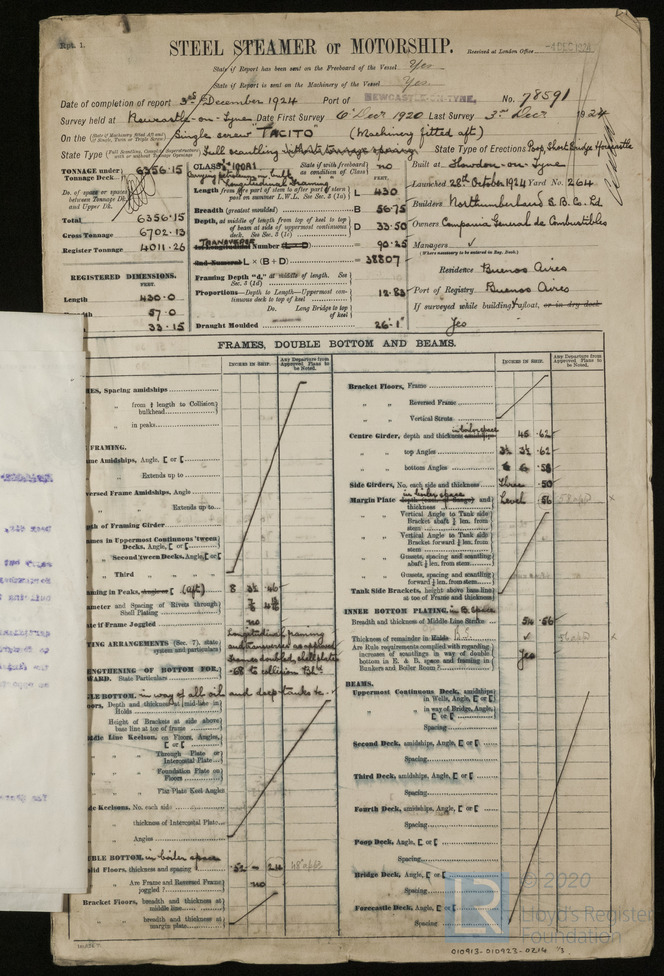 Rpt. 1.
STEEL STEAMER OR MOTORSHIP.
Received at London Office -4 DEC 1924
State if Report has been sent on the Freeboard of the Vessel Yes
State if Report is sent on the Machinery of the Vessel Yes.
Date of completion of report 3rd December 1924 Port of NEWCASTLE-ON-TYNE. No. 78591
Survey held at Newcastle-on-Tyne Date First Survey 6th Decr 1920 Last Survey 3rd Decr 1924
On the Single screw "TACITO" (Machinery fitted aft)
State Type Full scantling State Type of Erections Poop, Short Bridge Forecastle
TONNAGE under Tonnage Deck 6356.15
CLASS 100A1 Longitudinal Framing
State if with freeboard as condition of Class no
Built at Howdon-on-Tyne
Launched 28th October 1924 Yard No. 264
Length from fore part of stem to after part of stern post on summer L.W.L. See Sec. 3 (1a) L 430
Breadth (greatest moulded) B 56.75
Builders Northumberland S.B. Co. Ld
Total 6356.15
Depth, at middle of length from top of keel to top of beam at side of uppermost continuous deck. See Sec. 3 (1c) D 33.50
Owners Compania General de Combustibles
Gross Tonnage 6702.13
Register Tonnage 4011.26
TRANSVERSE Number = 90.25
Managers ✓
(Where necessary to be entered in Reg. Book.)
L × (B + D) = 38807
Residence Buenos Aires
REGISTERED DIMENSIONS.
FEET.
Framing Depth "d," at middle of length. See Sec. 3 (1d)
Port of Registry Buenos Aires
Length 430.0
Proportions—Depth to Length—Uppermost continuous deck to top of keel 12.83
If surveyed while building, afloat, or in dry dock
57.0
Do. Long Bridge to top of keel
Yes
33.15
Draught Moulded 26'.1"
FRAMES, DOUBLE BOTTOM AND BEAMS.
INCHES IN SHIP.
Any Departure from Approved Plans to be Noted.
INCHES IN SHIP.
Any Departure from Approved Plans to be Noted.
MES, Spacing amidships
" from ⅕ length to Collision bulkhead
" in peaks
FRAMING.
me Amidships, Angle, [ or [
" Extends up to
versed Frame Amidships, Angle
" Extends up to
gth of Framing Girder
ames in Uppermost Continuous 'tween Decks, Angle, [ or [
" Second 'tween Decks, Angle, [ or [
" Third " "
aming in Peaks, (aft) 8 3½ .46
ameter and Spacing of Rivets through Shell Plating
ate if Frame Joggled no
NTING ARRANGEMENTS (Sec. 7), state system and particulars Longitudinal framing and transverses as approved
ENGTHENING OF BOTTOM FORWARD. State Particulars
.68 to collision Bhd
LE BOTTOM, in way of all oil and deep tanks &c
oors, Depth and thickness at mid-line in Holds
Height of Brackets at side above base line at toe of frame
ddle Line Keelson, on Floors, Angles, [ or [
" " Through Plate or Intercostal Plate
" " Foundation Plate on Floors
" " Flat Plate Keel Angles
de Keelsons, No. each side
" thickness of Intercostal Plate
" Angles
UBLE BOTTOM, in boiler space
olid Floors, thickness and spacing .52 - 24
" Are Frame and Reversed Frame joggled? no
Bracket Floors, breadth and thickness at middle line
" breadth and thickness at margin plate
Bracket Floors, Frame
" " Reversed Frame
" " Vertical Struts
Centre Girder, depth and thickness in boiler space 45 .62
" top Angles 3½ 3½ .62
" bottom Angles 6 6 .58
Side Girders, No. each side and thickness Three .50
Margin Plate in boiler space and thickness Level .56
" Vertical Angle to Tank side Bracket abaft ¼ len. from stem
" Vertical Angle to Tank side Bracket forward ¼ len. from stem
" Gussets, spacing and scantling abaft ¼ len. from stem
" Gussets, spacing and scantling forward ¼ len. from stem
Tank Side Brackets, height above base line at toe of Frame and thickness
INNER BOTTOM PLATING, in B. space
Breadth and thickness of Middle Line Strake 54 .56
Thickness of remainder in Holds ✓
Are Rule requirements complied with regarding increases of scantlings in way of double bottom in E. & B. space and framing in Bunkers and Boiler Room? Yes
BEAMS.
Uppermost Continuous Deck, amidships in Wells, Angle, [ or [
" " in way of Bridge, Angle, [ or [
Spacing
Second Deck, amidships, Angle, [ or [
Spacing
Third Deck, amidships, Angle, [ or [
Spacing
Fourth Deck, amidships, Angle, [ or [
Spacing
Poop Deck, Angle, [ or [
Spacing
Bridge Deck, Angle, [ or [
Spacing
Forecastle Deck, Angle, [ or [
Spacing
© 2020
LR
Lloyd's Register
Foundation
010913-010923-0214 1/3